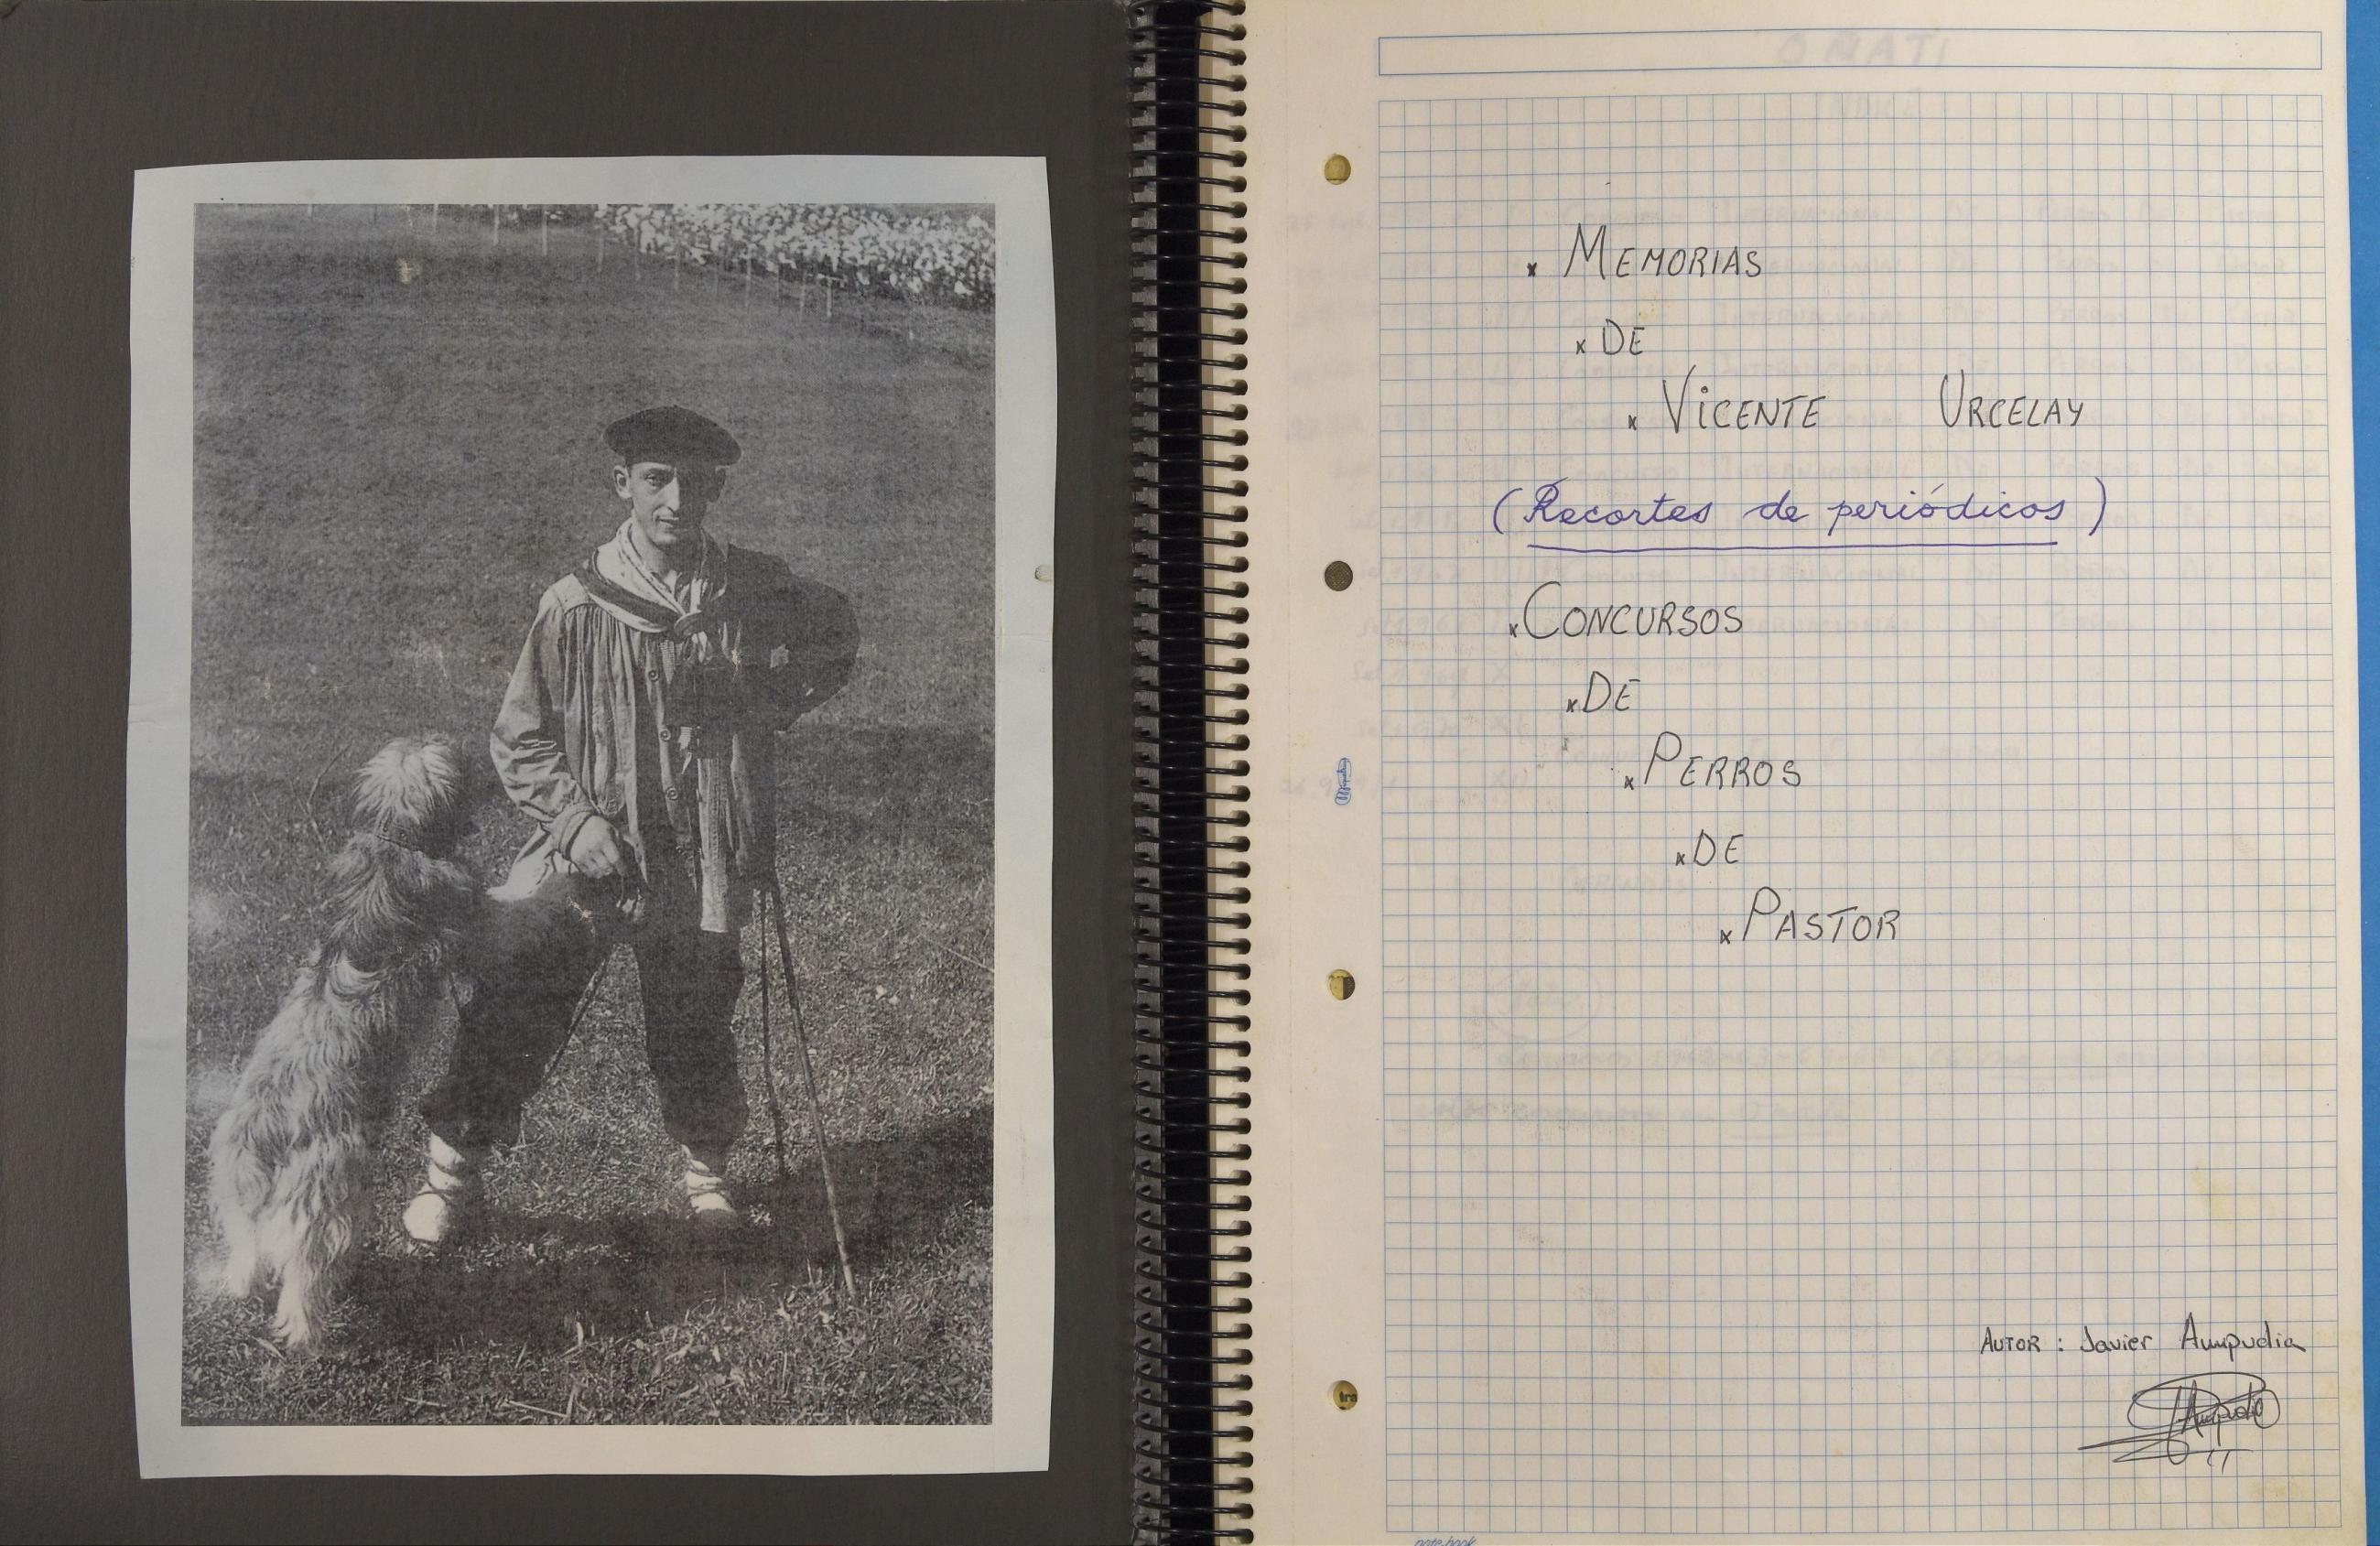 × MEMORIAS
× DE
× VICENTE URCELAY
(Recortes de periódicos)
× CONCURSOS
× DE
× PERROS
× DE
× PASTOR
AUTOR : Javier Ampudia
notebook